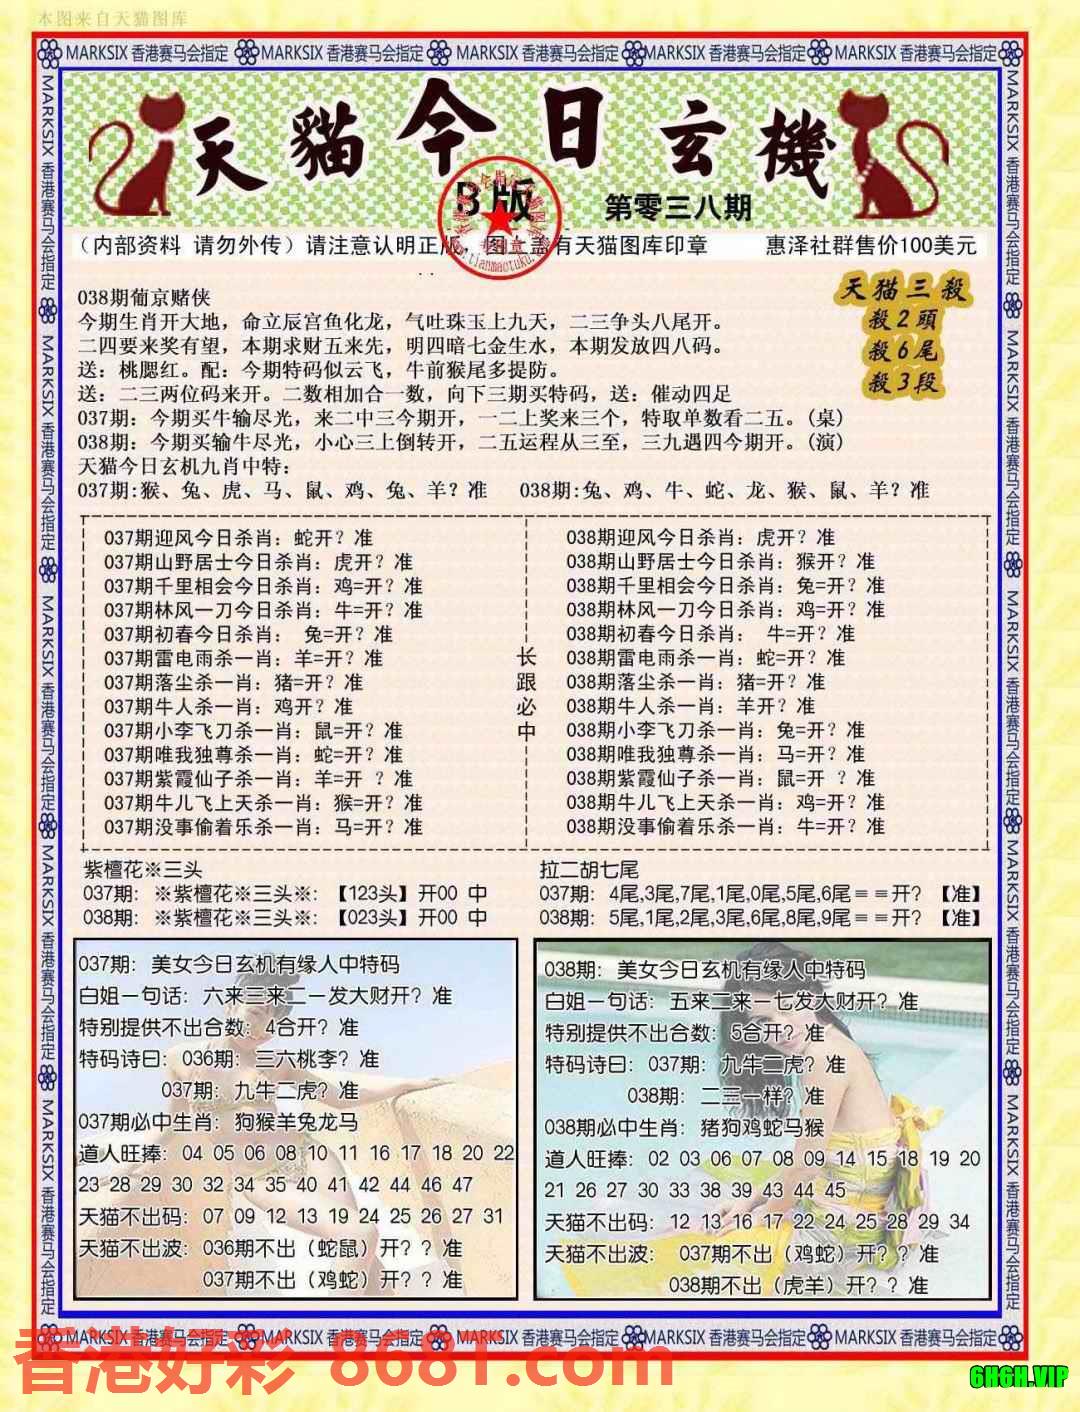 本图来自天猫图库
MARKSIX 香港赛马会指定 MARKSIX 香港赛马会指定 MARKSIX 香港赛马会指定 MARKSIX 香港赛马会指定 MARKSIX 香港赛马会指定
MARKSIX 香港赛马会指定 MARKSIX 香港赛马会指定 MARKSIX 香港赛马会指定 MARKSIX 香港赛马会指定 MARKSIX 香港赛马会指定
MARKSIX 香港赛马会指定 MARKSIX 香港赛马会指定 MARKSIX 香港赛马会指定 MARKSIX 香港赛马会指定 MARKSIX 香港赛马会指定
天貓今日玄機
B版
第零三八期
(内部资料 请勿外传)请注意认明正版,图上盖有天猫图库印章 惠泽社群售价100美元
www.tianmaotuku.com
天猫三殺
殺2頭
殺6尾
殺3段
038期葡京赌侠
今期生肖开大地，命立辰宫鱼化龙，气吐珠玉上九天，二三争头八尾开。
二四要来奖有望，本期求财五来先，明四暗七金生水，本期发放四八码。
送：桃腮红。配：今期特码似云飞，牛前猴尾多提防。
送：二三两位码来开。二数相加合一数，向下三期买特码，送：催动四足
037期：今期买牛输尽光，来二中三今期开，一二上奖来三个，特取单数看二五。(桌)
038期：今期买输牛尽光，小心三上倒转开，二五运程从三至，三九遇四今期开。(演)
天猫今日玄机九肖中特：
037期:猴、兔、虎、马、鼠、鸡、兔、羊？准 038期:兔、鸡、牛、蛇、龙、猴、鼠、羊？准
037期迎风今日杀肖：蛇开？准
037期山野居士今日杀肖：虎开？准
037期千里相会今日杀肖：鸡=开？准
037期林风一刀今日杀肖：牛=开？准
037期初春今日杀肖： 兔=开？准
037期雷电雨杀一肖：羊=开？准
037期落尘杀一肖：猪=开？准
037期牛人杀一肖：鸡开？准
037期小李飞刀杀一肖：鼠=开？准
037期唯我独尊杀一肖：蛇=开？准
037期紫霞仙子杀一肖：羊=开 ？准
037期牛儿飞上天杀一肖：猴=开？准
037期没事偷着乐杀一肖：马=开？准
长跟必中
038期迎风今日杀肖：虎开？准
038期山野居士今日杀肖：猴开？准
038期千里相会今日杀肖：兔=开？准
038期林风一刀今日杀肖：鸡=开？准
038期初春今日杀肖： 牛=开？准
038期雷电雨杀一肖：蛇=开？准
038期落尘杀一肖：猪=开？准
038期牛人杀一肖：羊开？准
038期小李飞刀杀一肖：兔=开？准
038期唯我独尊杀一肖：马=开？准
038期紫霞仙子杀一肖：鼠=开 ？准
038期牛儿飞上天杀一肖：鸡=开？准
038期没事偷着乐杀一肖：牛=开？准
紫檀花※三头
037期：※紫檀花※三头※：【123头】开00 中
038期：※紫檀花※三头※：【023头】开00 中
拉二胡七尾
037期：4尾,3尾,7尾,1尾,0尾,5尾,6尾==开？【准】
038期：5尾,1尾,2尾,3尾,6尾,8尾,9尾==开？【准】
037期：美女今日玄机有缘人中特码
白姐一句话：六来三来二一发大财开？准
特别提供不出合数：4合开？准
特码诗曰：036期：三六桃李？准
037期：九牛二虎？准
037期必中生肖：狗猴羊兔龙马
道人旺捧：04 05 06 08 10 11 16 17 18 20 22
23 28 29 30 32 34 35 40 41 42 44 46 47
天猫不出码：07 09 12 13 19 24 25 26 27 31
天猫不出波：036期不出（蛇鼠）开？？准
037期不出（鸡蛇）开？？准
038期：美女今日玄机有缘人中特码
白姐一句话：五来二来一七发大财开？准
特别提供不出合数：5合开？准
特码诗曰：037期：九牛二虎？准
038期：二三一样？准
038期必中生肖：猪狗鸡蛇马猴
道人旺捧：02 03 06 07 08 09 14 15 18 19 20
21 26 27 30 33 38 39 43 44 45
天猫不出码：12 13 16 17 22 24 25 28 29 34
天猫不出波： 037期不出（鸡蛇）开？？准
038期不出（虎羊）开？？准
MARKSIX 香港赛马会指定 MARKSIX 香港赛马会指定 MARKSIX 香港赛马会指定 MARKSIX 香港赛马会指定 MARKSIX 香港赛马会指定
香港好彩 8681.com
6HGH.VIP